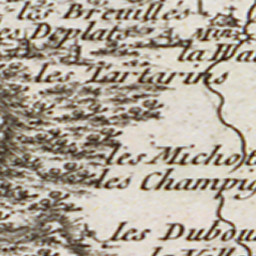 les Breuillés
es Deplat
Min
la Wa
les Tartarins
les Micho
les Champi
les Dubou
la Vill